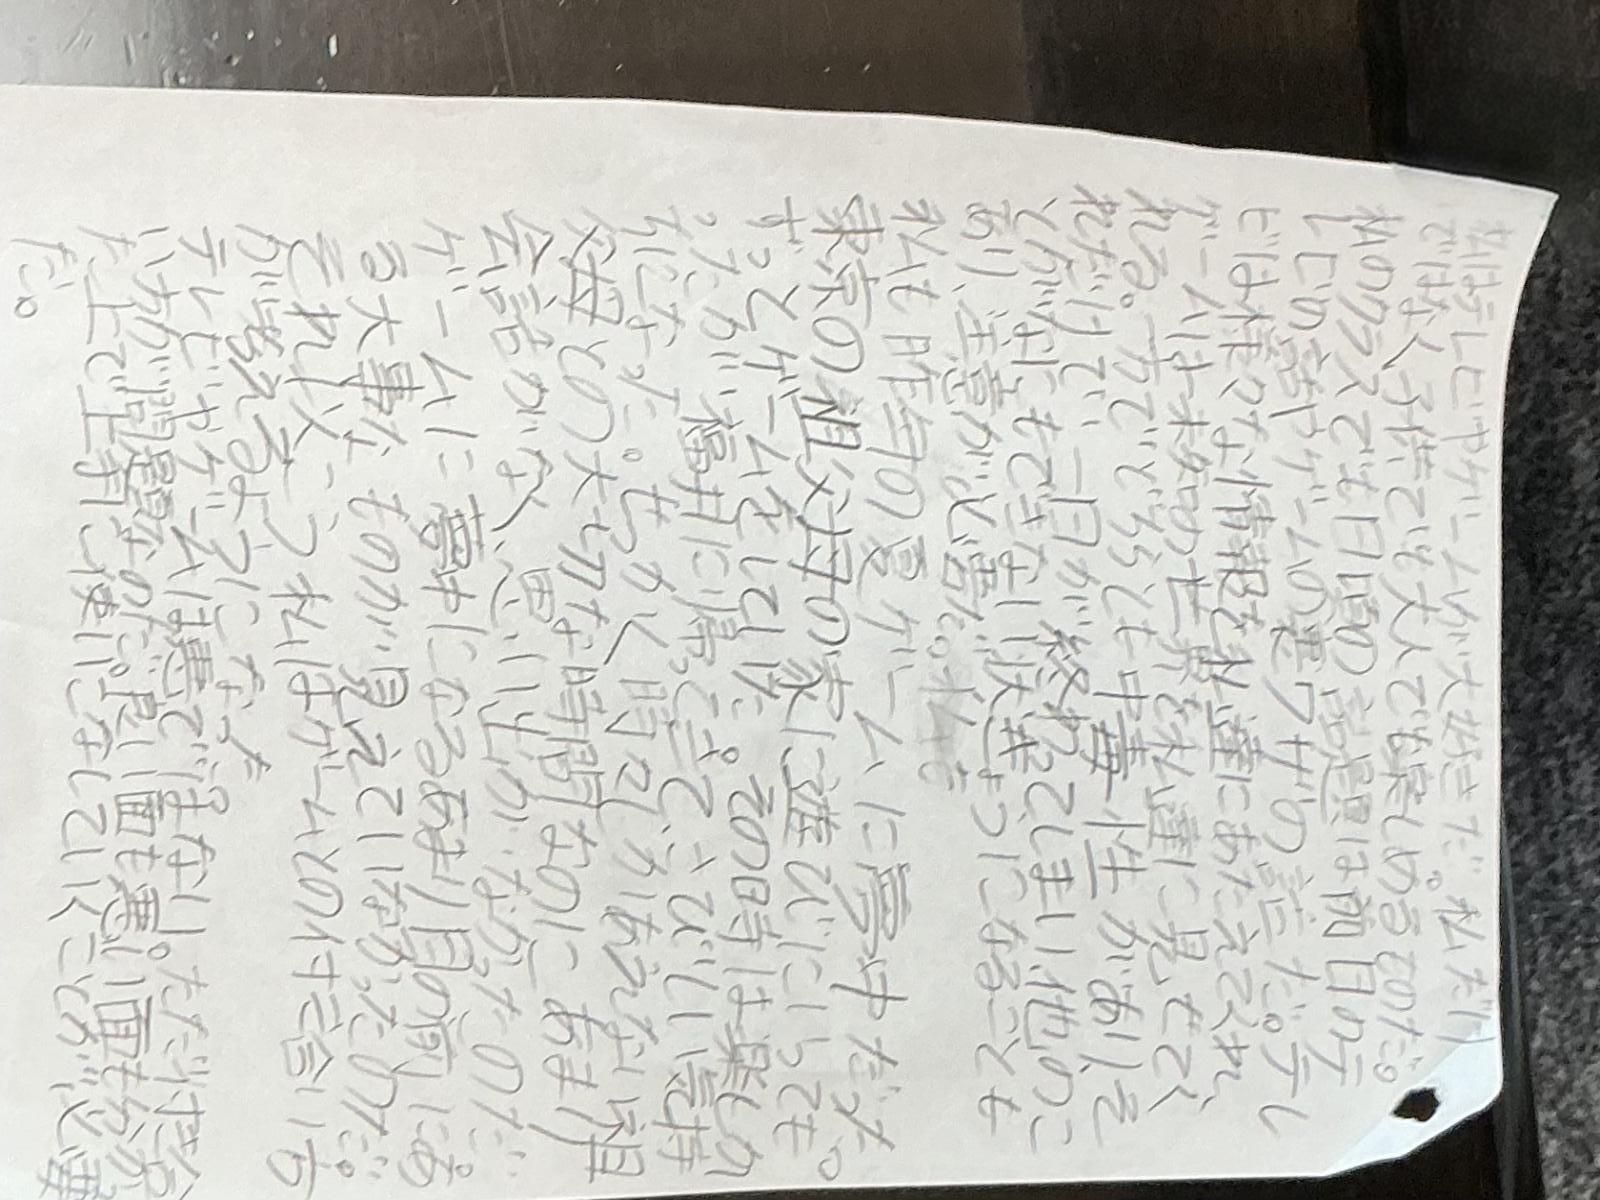 私はテレビやゲームが大好きだ。私だけ
ではなく子供でも大人でも楽しめるものだ。
私のクラスでも日頃の話題は前日のテ
レビの話やゲームの裏ワザの話だ。テレ
ビは様々な情報を私達にあたえてくれ、
ゲームは未知の世界を私達に見せてく
れる。一方でどちらとも中毒性がありそ
れだけで一日が終わってしまい他のこ
とがなにもできない状態
あり、注意が必要だ。
私も昨年の夏ゲームに夢中だった。
東京の祖父母の家に遊びにいっても
ずっとゲームをしていた。その時は楽しか
ったが福井に帰って、さびしい気持
ちになった。せっかく時々しかあえない祖
父母との大切な時間なのに あまり
会話がなく思い出がなかったのだ。
ゲームに夢中になるあまり目の前にあ
る大事なものが見えていなかったのだ。
それ以来、私はゲームとの付き合い方
が考えるようになった
テレビやゲームは悪ではない。ただけださ
いが問題なのだ。良い面も悪い面も分か
た上で上手に使いこなしていくことが必要
だ。